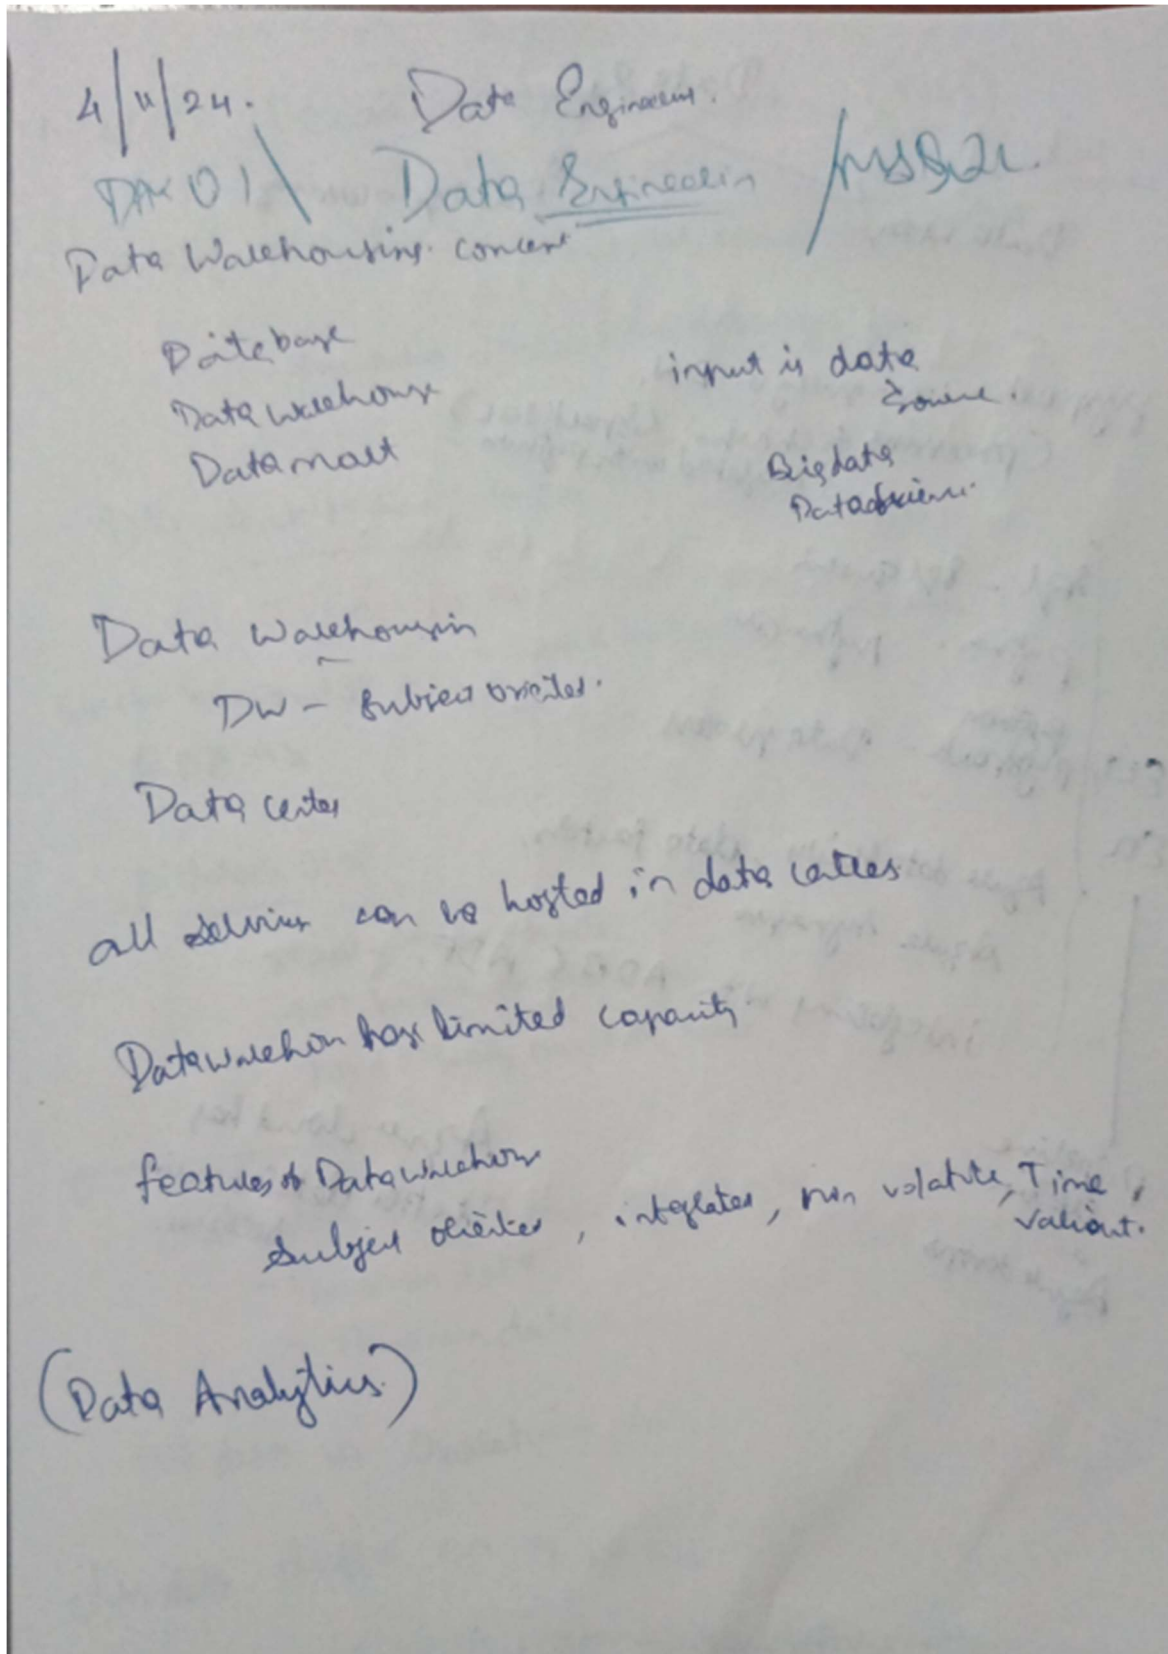 4/11/24. Data Engineering.
DAY 01 \ Data Engineerin / MySQL.
Data Warehousing concept
Database
input is data
Source.
Data warehouse
Datamart
Bigdata
Datascience.
Data Warehousin
DW - Subject oriented.
Data center
all services can be hosted in data centres
Datawarehouse has limited capacity.
features of Datawarehouse
Subject oriented, integrated, non volatile, Time
Variant.
(Data Analytics)